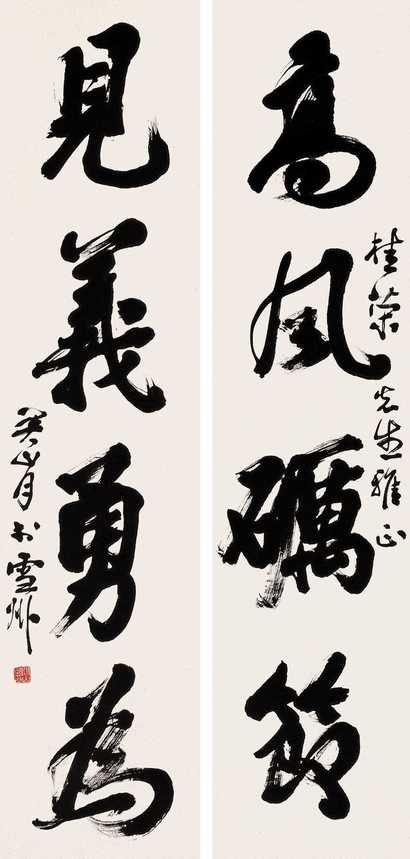 高風礪節
桂榮先生雅正
見義勇為
关山月於雪州